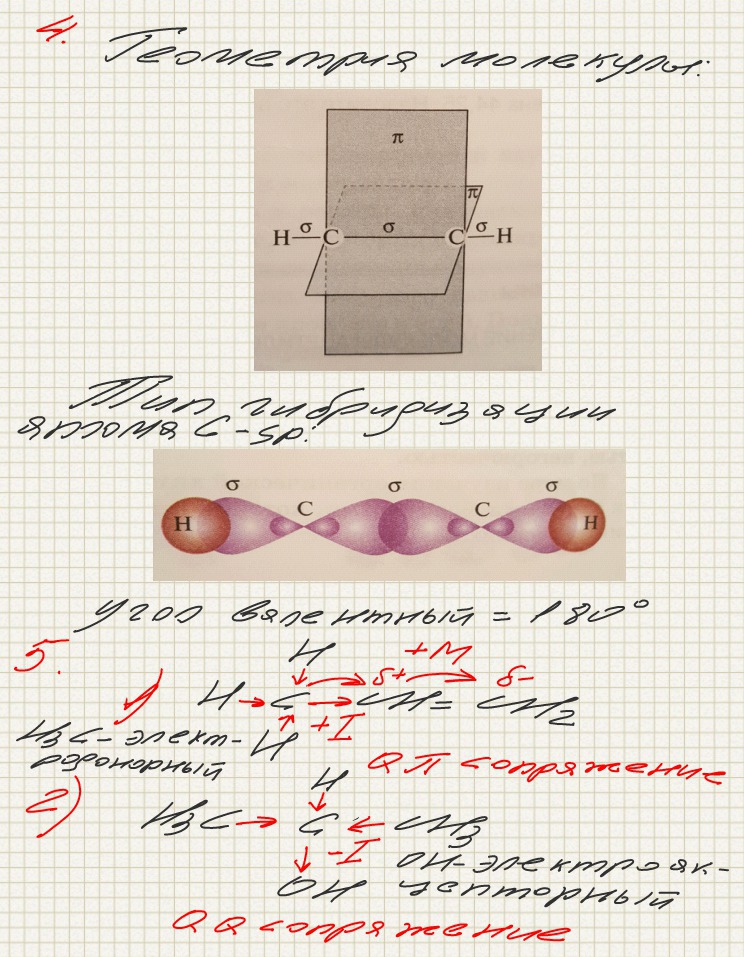 4.
Геометрия молекулы:
π
π
H σ C σ C σ H
Тип гибридизации
атома C - sp:
σ σ σ
C C
H H
Угол валентный = 180°
5.
H +M
1) H → C → CH = CH2
δ+ δ-
+I
H3C - элект- H
родонорный
σπ сопряжение
H
2) H3C → C ← CH3
-I OH - электроак-
OH цепторный
σσ сопряжение